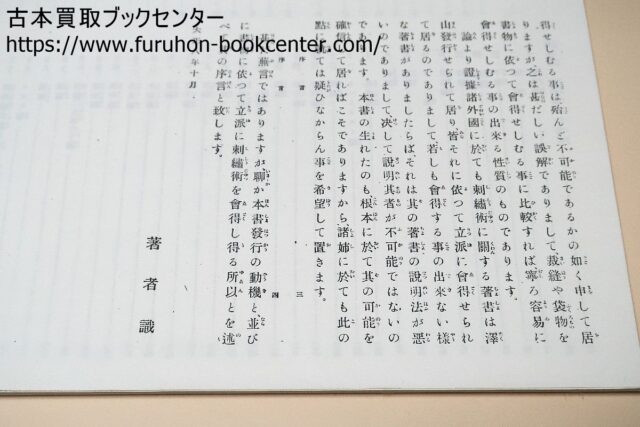 古本買取ブックセンター
https://www.furuhon-bookcenter.com/
得せしむる事は殆んど不可能であるかの如く申して居
りますが之は甚だしい誤解でありまして、裁縫や袋物を
書物に依つて會得せしむる事に比較すれば寧ろ容易に
會得せしむる事の出來る性質のものであります。
論より證據諸外國に於ても刺繡術に關する著書は澤
山發行せられて居り皆それに依つて立派に會得せられ
て居るのでありまして若しも會得する事の出來ない樣
な著書がありましたらば、それは其の著書の説明法が惡
いのでありまして決して説明其者が不可能ではないの
であります。本書の生れたのも根本に於て其の可能を
確信して居ればこそでありますから、諸姉に於ても此の
點に就ては疑ひなからん事を希望して置きます。
序言 三
序言 四
蕪言ではありますが聊か本書發行の動機と並び
に書物に依つて立派に刺繡術を會得し得る所以とを述
べて序言と致します。
年十月
著者識